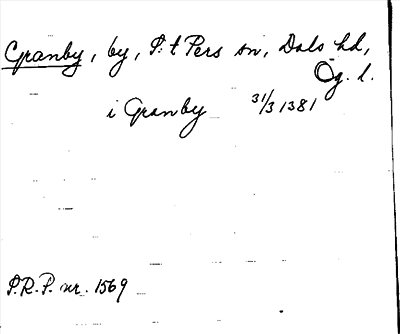 Granby, by, S:t Pers sn, Dals hd,
Ög. l.
i Granby 31/3 1381
S.R.P. nr. 1569